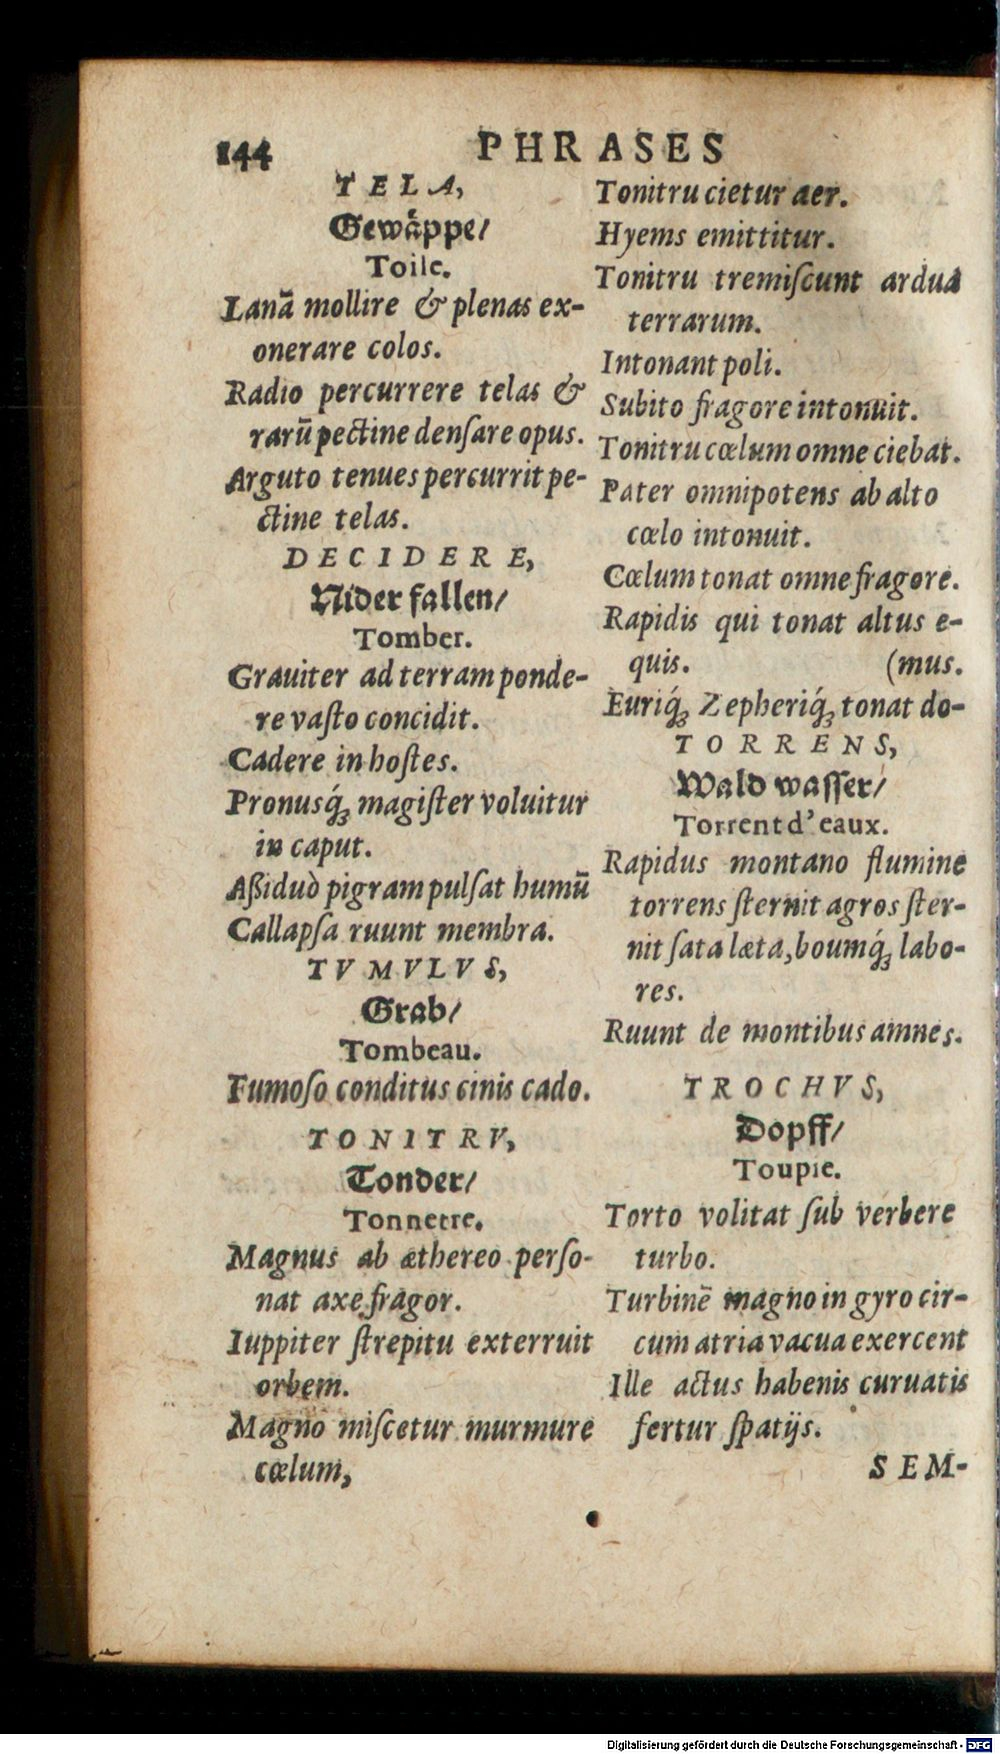 144
PHRASES
TELA,
Gewåppe/
Toile.
Lanā mollire & plenas ex-
onerare colos.
Radio percurrere telas &
rarū pectine denſare opus.
Arguto tenues percurrit pe-
ctine telas.
DECIDERE,
Nider fallen/
Tomber.
Grauiter ad terram ponde-
re vaſto concidit.
Cadere in hoſtes.
Pronusq́ꝫ magiſter voluitur
in caput.
Aßiduò pigram pulſat humū
Callapſa ruunt membra.
TVMVLVS,
Grab/
Tombeau.
Fumoſo conditus cinis cado.
TONITRV,
Tonder/
Tonnerre.
Magnus ab æthereo perſo-
nat axe fragor.
Iuppiter ſtrepitu exterruit
orbem.
Magno miſcetur murmure
cœlum,
Tonitru cietur aer.
Hyems emittitur.
Tonitru tremiſcunt ardua
terrarum.
Intonant poli.
Subito fragore intonuit.
Tonitru cœlum omne ciebat.
Pater omnipotens ab alto
cœlo intonuit.
Cœlum tonat omne fragore.
Rapidis qui tonat altus e-
quis. (mus.
Euriq́ꝫ Zepheriq́ꝫ tonat do-
TORRENS,
Wald waſſer/
Torrent d'eaux.
Rapidus montano flumine
torrens ſternit agros ſter-
nit ſata læta, boumq́ꝫ labo-
res.
Ruunt de montibus amnes.
TROCHVS,
Dopff/
Toupie.
Torto volitat ſub verbere
turbo.
Turbinē magno in gyro cir-
cum atria vacua exercent
Ille actus habenis curuatis
fertur ſpatijs.
SEM-
Digitalisierung gefördert durch die Deutsche Forschungsgemeinschaft - DFG